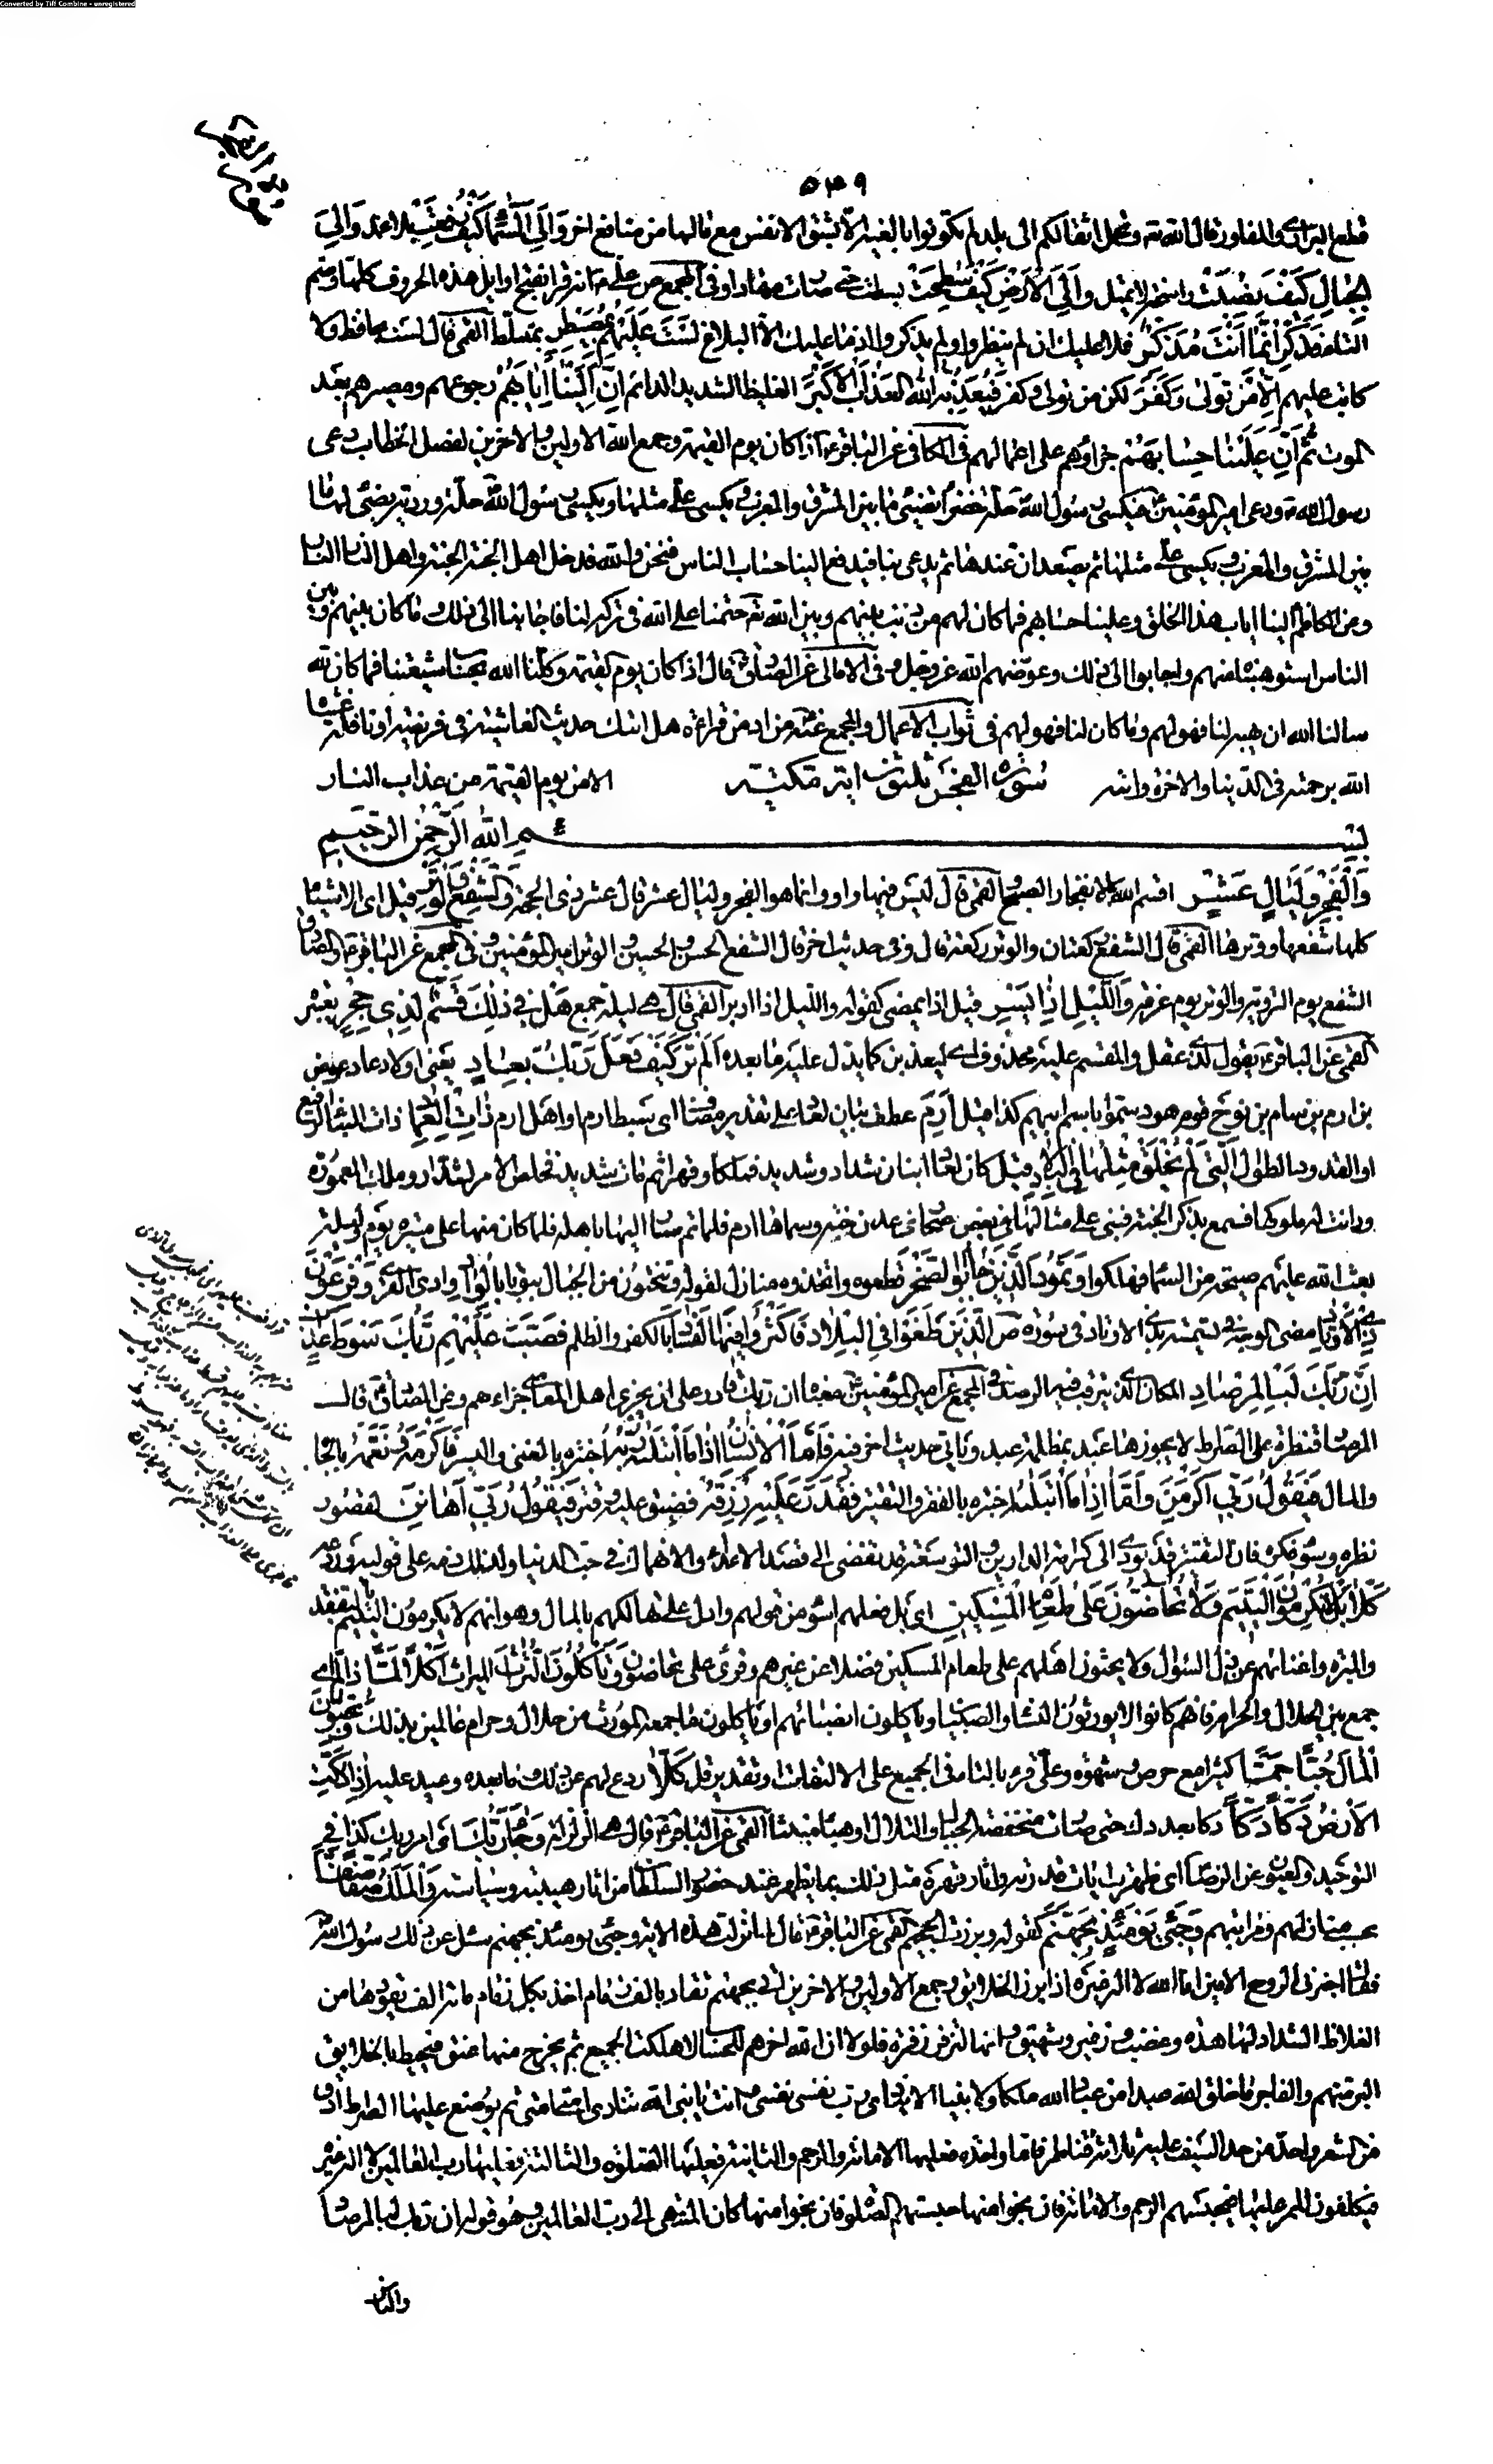 Converted by Tiff Combine - unregistered
٥٣٩
قطع البراري والمفاوز قال الله تعالى وتحمل اثقالكم الى بلد لم تكونوا بالغيه الا بشق الانفس مع ما لها من منافع اخر وَاِلَى السَّمَاءِ كَيْفَ رُفِعَتْ بلا عمد وَاِلَى
الْجِبَالِ كَيْفَ نُصِبَتْ راسخة لا تميل وَاِلَى الْاَرْضِ كَيْفَ سُطِحَتْ بسطت حتى صارت مهادا وفي المجمع عن علي ع انه قرأ بفتح اوايل هذه الحروف كلها وضم
التاء فَذَكِّرْ اِنَّمَا اَنْتَ مُذَكِّرٌ فلا عليك ان لم ينظروا ولم يذكروا اذ ما عليك الا البلاغ لَسْتَ عَلَيْهِمْ بِمُصَيْطِرٍ بمتسلط القمي قال لست بحافظ ولا
كاتب عليهم اِلَّا مَنْ تَوَلّٰى وَكَفَرَ لكن من تولى وكفر فَيُعَذِّبُهُ اللّٰهُ الْعَذَابَ الْاَكْبَرَ الغليظ الشديد الدائم اِنَّ اِلَيْنَا اِيَابَهُمْ رجوعهم ومصيرهم بعد
الموت ثُمَّ اِنَّ عَلَيْنَا حِسَابَهُمْ جزاؤهم على اعمالهم في الكافي عن الباقر ع اذا كان يوم القيمة وجمع الله الاولين والاخرين لفصل الخطاب دعى
رسول الله ص ودعى امير المؤمنين ع فيكسى رسول الله ص حلة خضراء تضيئ ما بين المشرق والمغرب ويكسى علي ع مثلها ويكسى رسول الله ص حلة وردية يضيئ لها ما
بين المشرق والمغرب ويكسى علي ع مثلها ثم يصعدان عندها ثم يدعى بنا فيدفع الينا حساب الناس فنحن والله ندخل اهل الجنة الجنة واهل النار النار
وعن الكاظم ع الينا اياب هذا الخلق وعلينا حسابهم فما كان لهم من ذنب بينهم وبين الله تعالى حتمنا على الله في تركه لنا فاجابنا الى ذلك وما كان بينهم وبين
الناس استوهبناه منهم واجابوا الى ذلك وعوضهم الله عز وجل وفي الامالي عن الصادق ع قال اذا كان يوم القيمة وكلنا الله بحساب شيعتنا فما كان لله
سالنا الله ان يهبه لنا فهو لهم وما كان لنا فهو لهم في ثواب الاعمال والمجمع عنه ع من ادمن قراءة هل اتيك حديث الغاشية في فريضة او نافلة غشاه
الله برحمته في الدنيا والاخرة واتاه الامن يوم القيمة من عذاب النار
سُورة الفجر ثلثون اية مكية
بِسْمِ اللّٰهِ الرَّحْمٰنِ الرَّحِيمِ
وَالْفَجْرِ وَلَيَالٍ عَشْرٍ اقسم الله بالانفجار الصبح القمي قال ليس فيها واو وانما هو الفجر وليال عشر قال عشر ذي الحجة وَالشَّفْعِ وَالْوَتْرِ قيل اى الاشياء
كلها شفعها ووترها القمي قال الشفع ركعتان والوتر ركعة قال وفي حديث اخر قال الشفع الحسن والحسين والوتر امير المؤمنين وفي المجمع عن الباقر والصادق
الشفع يوم التروية والوتر يوم عرفة وَاللَّيْلِ اِذَا يَسْرِ قيل اذا يمضي كقوله والليل اذا ادبر القمي قال هي ليلة جمع هَلْ فِي ذٰلِكَ قَسَمٌ لِذِي حِجْرٍ يعتبر
القمي عن الباقر ع يقول لذي عقل والمقسم عليه محذوف اى ليعذبن كما يدل عليه ما بعده اَلَمْ تَرَ كَيْفَ فَعَلَ رَبُّكَ بِعَادٍ يعني اولاد عاد بن عوص
بن ارم بن سام بن نوح قوم هود سموا باسم ابيهم كذا قيل اِرَمَ عطف بيان لعاد على تقدير مضاف اى سبط ارم او اهل ارم ذَاتِ الْعِمَادِ ذات البناء الرفيع
او القدود الطوال الَّتِي لَمْ يُخْلَقْ مِثْلُهَا فِي الْبِلَادِ قيل كان لعاد ابنان شداد وشديد فملكا وقهرا ثم مات شديد فخلص الامر لشداد وملك المعمورة
ودانت له ملوكها فسمع بذكر الجنة فبنى على مثالها في بعض صحارى عدن جنة وسماها ارم فلما تم سار اليها باهله فلما كان منها على مسيرة يوم وليلة
بعث الله عليهم صيحة من السماء فهلكوا وَثَمُودَ الَّذِينَ جَابُوا الصَّخْرَ قطعوه واتخذوه منازل لقوله وتنحتون من الجبال بيوتا بِالْوَادِ وادى القرى وَفِرْعَوْنَ
ذِي الْاَوْتَادِ مضى الوجه في تسميته بذي الاوتاد في سورة ص الَّذِينَ طَغَوْا فِي الْبِلَادِ فَاَكْثَرُوا فِيهَا الْفَسَادَ بالكفر والظلم فَصَبَّ عَلَيْهِمْ رَبُّكَ سَوْطَ عَذَابٍ
اِنَّ رَبَّكَ لَبِالْمِرْصَادِ المكان الذي يترقب فيه الرصد في المجمع عن امير المؤمنين ع معناه ان ربك قادر على ان يجزي اهل المعاصي جزاءهم وعن الصادق ع قال
المرصاد قنطرة على الصراط لا يجوزها عبد بمظلمة عبد وياتي حديث اخر فيه فَاَمَّا الْاِنْسَانُ اِذَا مَا ابْتَلٰيهُ رَبُّهُ اختبره بالغنى واليسر فَاَكْرَمَهُ وَنَعَّمَهُ بالجاه
والمال فَيَقُولُ رَبِّي اَكْرَمَنِ وَاَمَّا اِذَا مَا ابْتَلٰيهُ اختبره بالفقر والتقتير فَقَدَرَ عَلَيْهِ رِزْقَهُ فضيق عليه وقتر فَيَقُولُ رَبِّي اَهَانَنِ لقصور
نظره وسوء فكره فان التقتير قد يؤدي الى كرامة الدارين والتوسعة قد تفضي الى قصد الاعداء والانهماك في حب الدنيا ولذلك ذمه على قوليه وردعه
كَلَّا بَلْ لَا تُكْرِمُونَ الْيَتِيمَ وَلَا تَحَاضُّونَ عَلٰى طَعَامِ الْمِسْكِينِ اى بل فعلهم اسوء من قولهم وادل على تهالكهم بالمال وهو انهم لا يكرمون اليتيم بالتفقد
والمبرة واغنائهم عن ذل السؤال ولا يحثون اهلهم على طعام المسكين فضلا عن غيرهم وقرئ على تحاضون وَتَاْكُلُونَ التُّرَاثَ الميراث اَكْلًا لَمًّا ذا لم اى
جمع بين الحلال والحرام فانهم كانوا لا يورثون النساء والصبيان وياكلون انصبائهم او ياكلون ما جمعه المورث من حلال وحرام عالمين بذلك وَتُحِبُّونَ
الْمَالَ حُبًّا جَمًّا كثيرا مع حرص وشهوة وعلى قرء بالتاء في الجميع على الالتفات او تقدير قل كَلَّا ردع لهم عن ذلك وما بعده وعيد عليه اِذَا دُكَّتِ
الْاَرْضُ دَكًّا دَكًّا دكا بعد دك حتى صارت منخفضة الجبال والتلال او هباء منبثا القمي عن الباقر ع قال هي الزلزلة وَجَاءَ رَبُّكَ اى امر ربك كذا في
التوحيد والعيون عن الرضا ع اى ظهرت ايات قدرته واثار قهره مثل ذلك بما يظهر عند حضور السلطان من اثار هيبته وسياسته وَالْمَلَكُ صَفًّا صَفًّا
بحسب منازلهم ومراتبهم وَجِيءَ يَوْمَئِذٍ بِجَهَنَّمَ كقوله وبرزت الجحيم القمي عن الباقر ع قال لما نزلت هذه الاية وجئ يومئذ بجهنم سئل عن ذلك رسول الله ص
فقال اخبرني الروح الامين ان الله لا اله غيره اذا ابرز الخلايق وجمع الاولين والاخرين اتى بجهنم تقاد بالف زمام اخذ بكل زمام مائة الف يقودها من
الغلاظ الشداد لها هدة وغضب وزفير وشهيق وانها لتزفر زفرة فلولا ان الله اخرهم للحساب لاهلكت الجميع ثم يخرج منها عنق فيحيط بالخلايق
البر منهم والفاجر ما خلق الله عبدا من عباد الله ملكا ولا نبيا الا ينادي رب نفسي نفسي وانت يا نبي الله تنادي امتي امتي ثم يوضع عليها الصراط ادق
من الشعر واحد من حد السيف عليه ثلاث قناطر فاما واحدة فعليها الامانة والرحم والثانية فعليها الصلوة والثالثة فعليها رب العالمين لا اله غيره
فيكلفون الممر عليها فيحبسهم الرحم والامانة فان نجوا منها حبستهم الصلوة فان نجوا منها كان المنتهى الى رب العالمين وهو قوله ان ربك لبالمرصاد
والناس